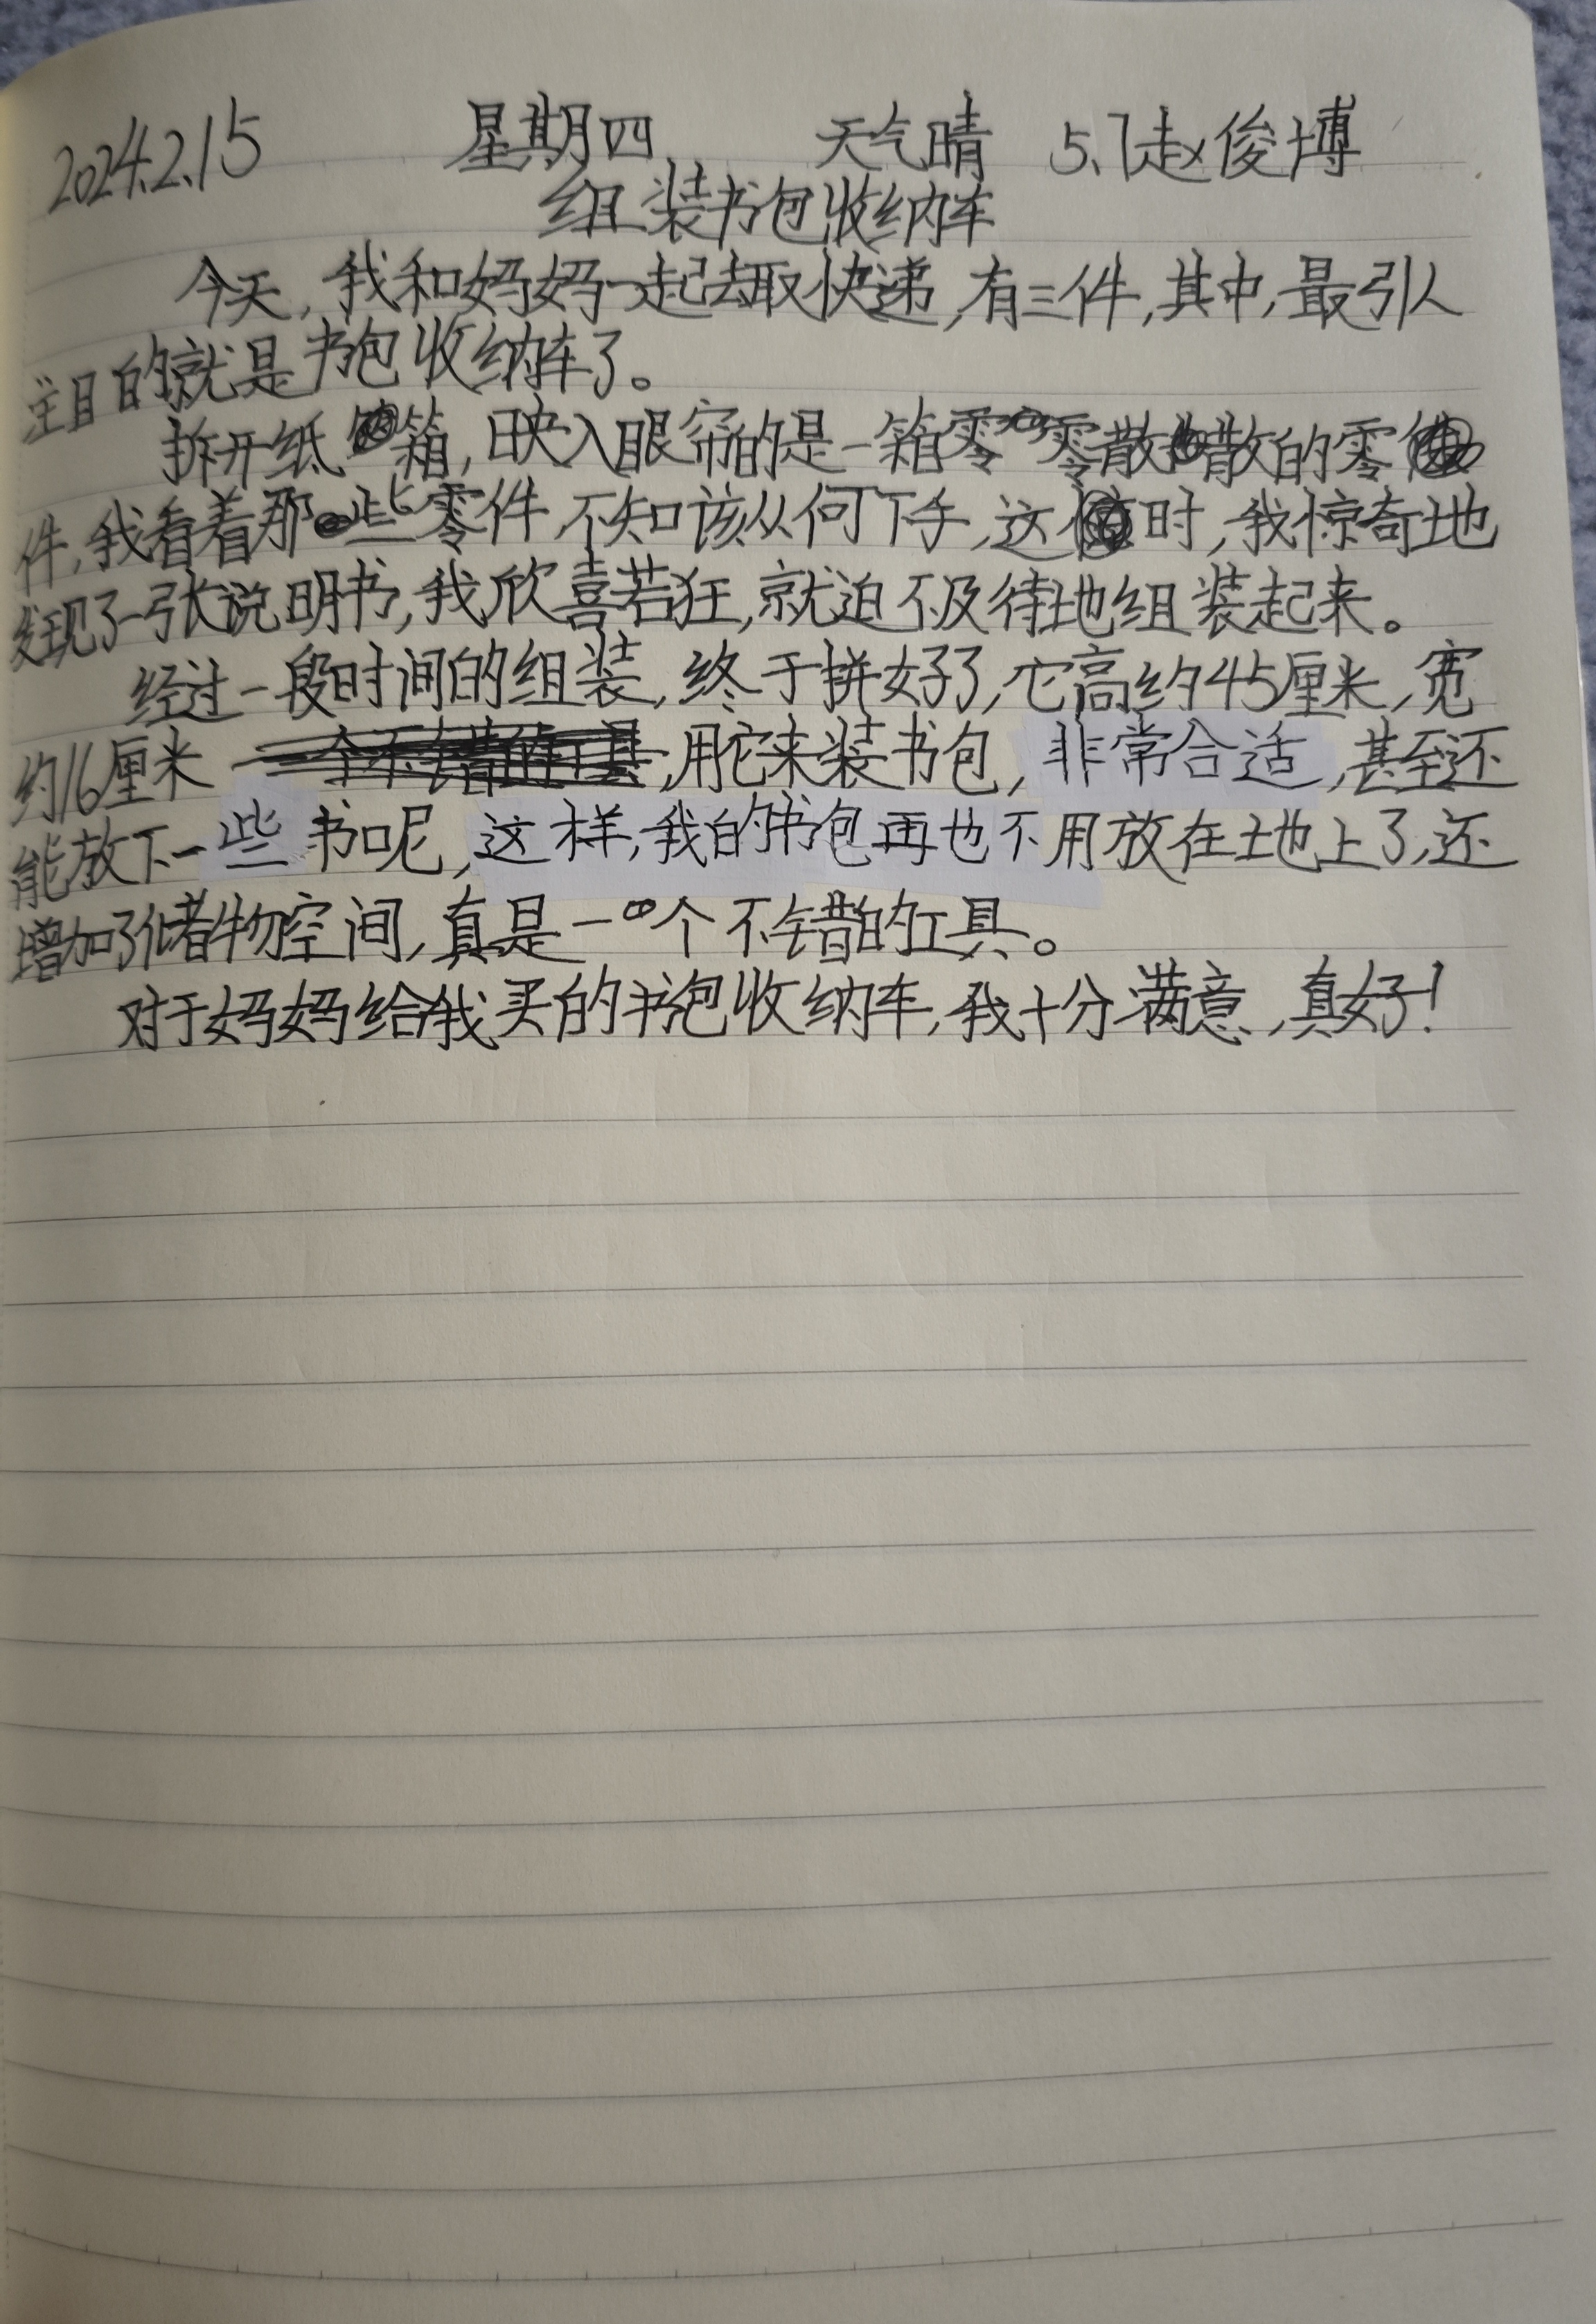 2024.2.15 星期四 天气晴 5.7赵俊博
组装书包收纳车
今天,我和妈妈一起去取快递,有三件,其中,最引人
注目的就是书包收纳车了。
拆开纸箱,映入眼帘的是一箱零零散散的零
件,我看着那些零件,不知该从何下手,这时,我惊奇地
发现了一张说明书,我欣喜若狂,就迫不及待地组装起来。
经过一段时间的组装,终于拼好了,它高约45厘米,宽
约16厘米,用它来装书包,非常合适,甚至还
能放下一些书呢,这样,我的书包再也不用放在地上了,还
增加了储物空间,真是一个不错的工具。
对于妈妈给我买的书包收纳车,我十分满意,真好!